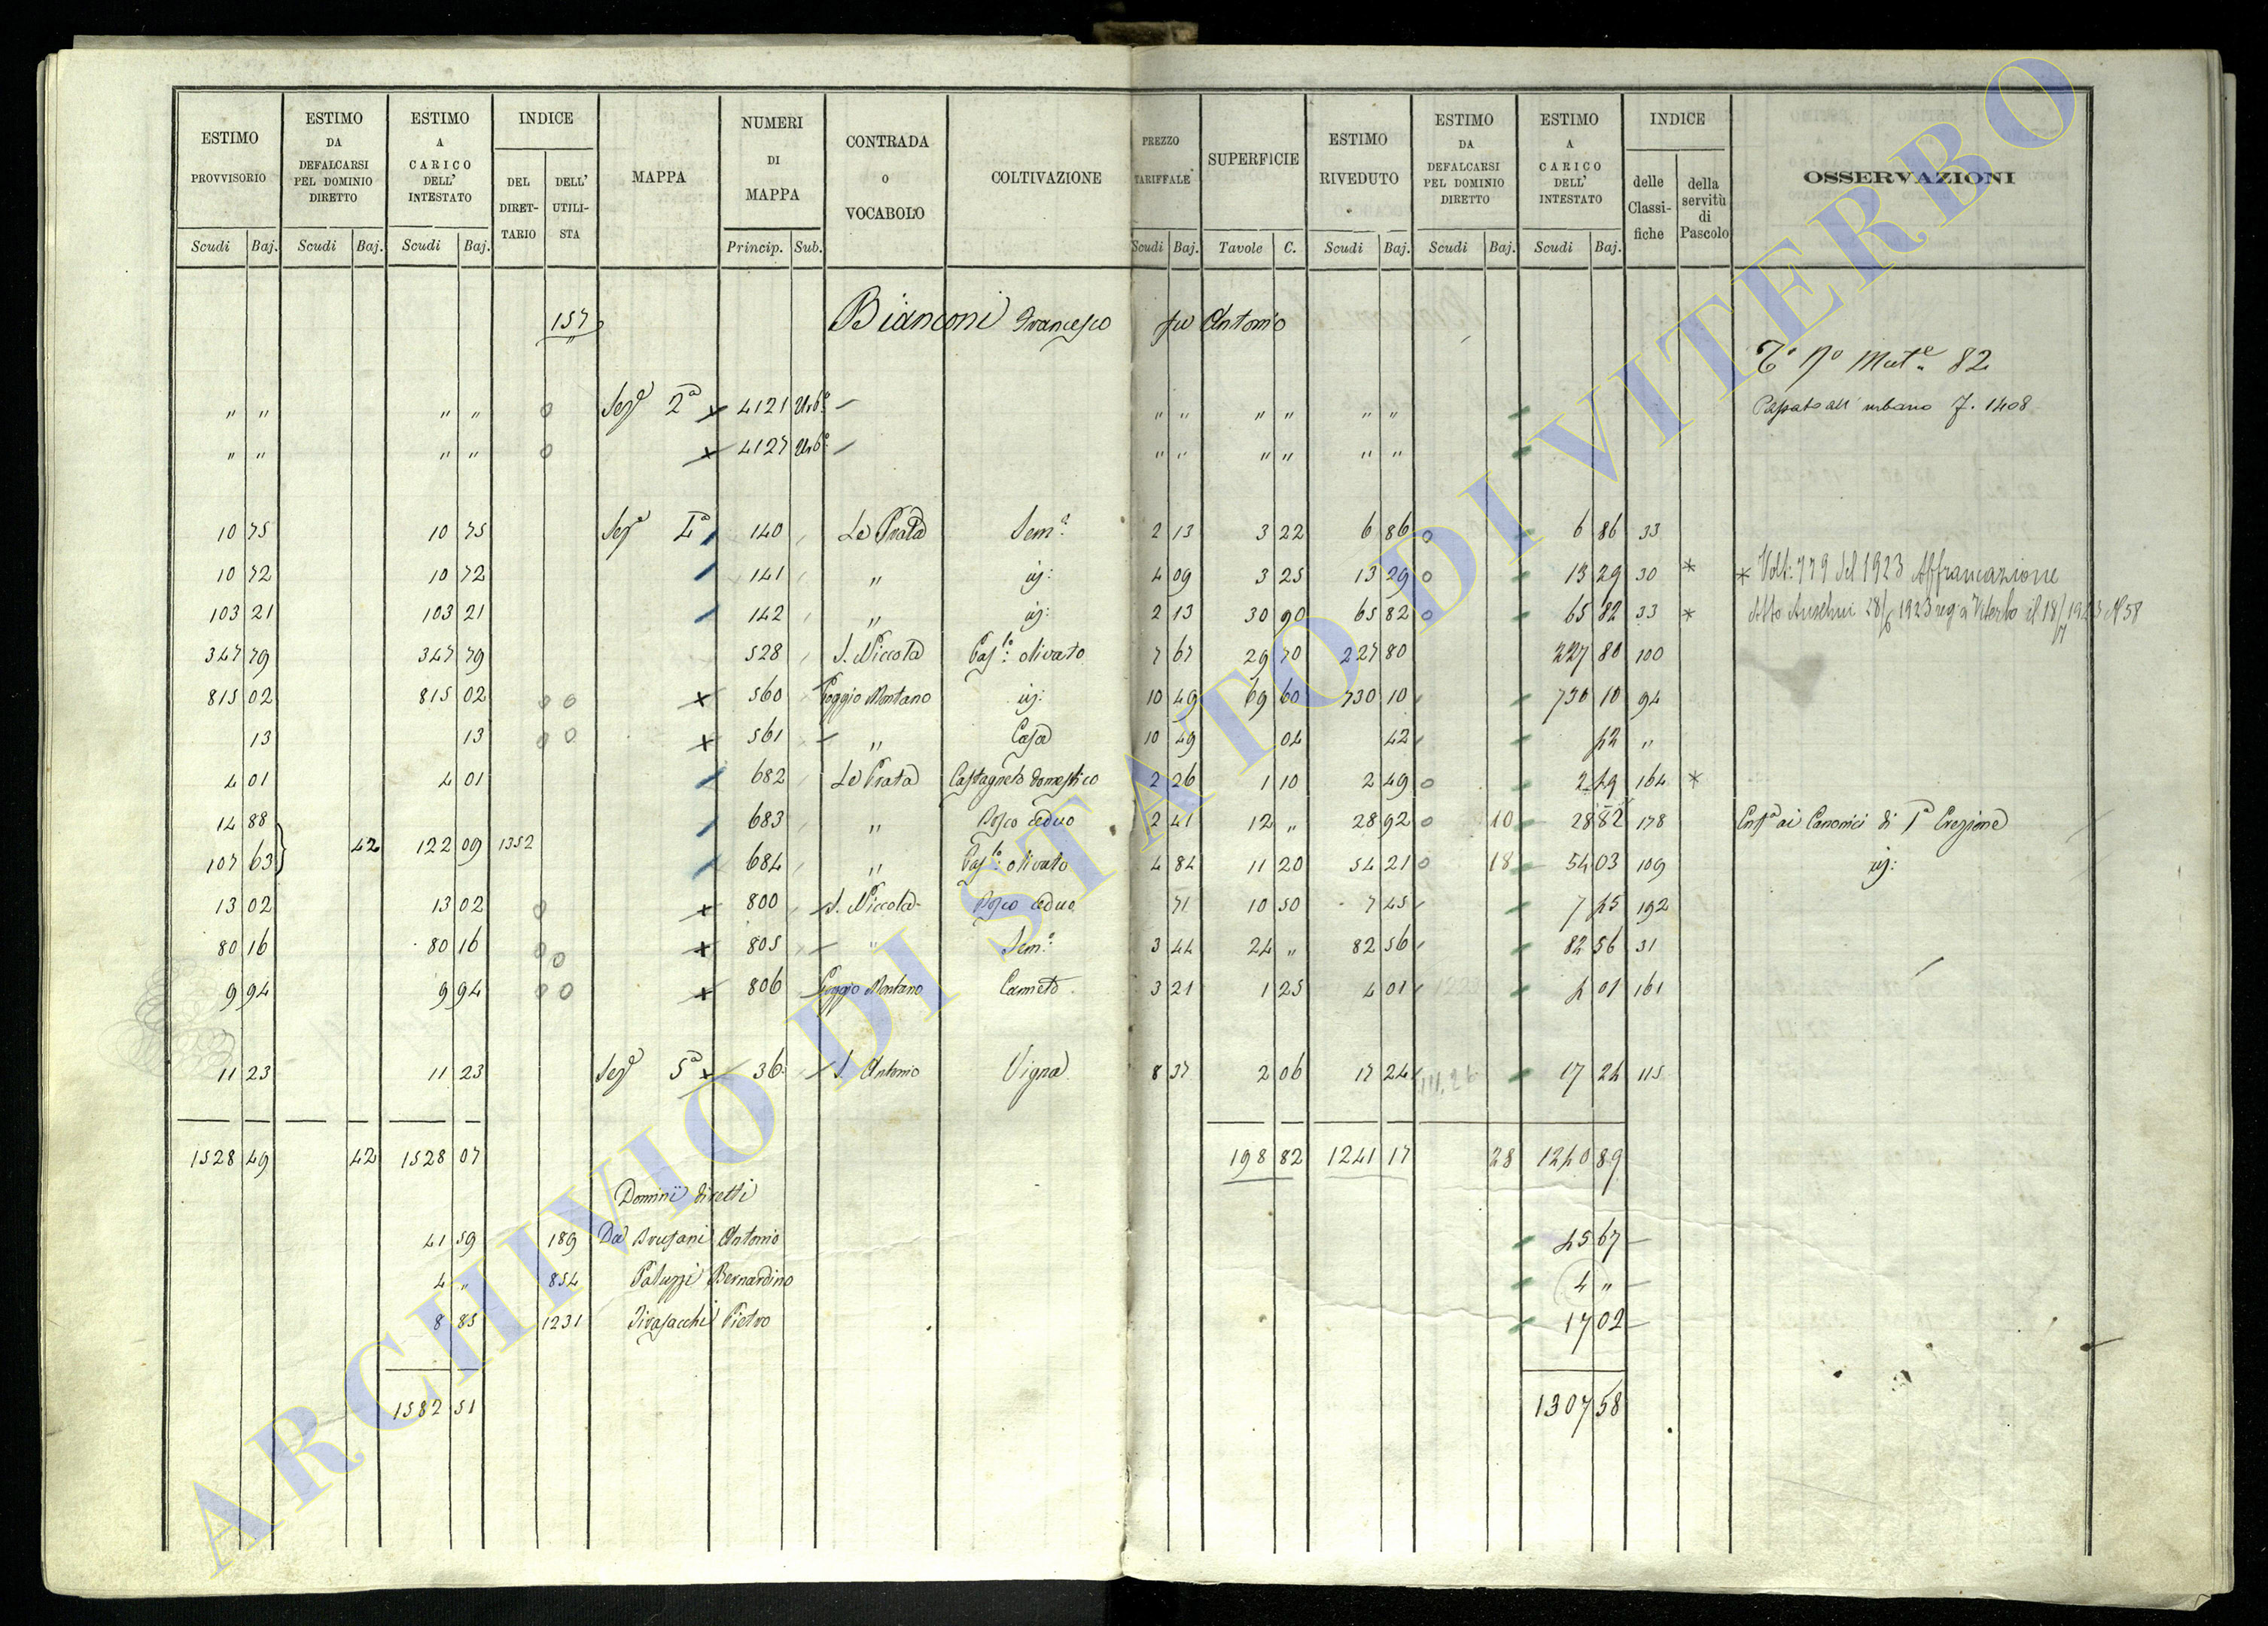 ESTIMO PROVVISORIO Scudi Baj.
ESTIMO DA DEFALCARSI PEL DOMINIO DIRETTO Scudi Baj.
ESTIMO A CARICO DELL' INTESTATO Scudi Baj.
INDICE DEL DIRET-TARIO DELL' UTILI-STA
MAPPA
NUMERI DI MAPPA Princip. Sub.
CONTRADA O VOCABOLO
COLTIVAZIONE
PREZZO TARIFFALE Scudi Baj.
SUPERFICIE Tavole C.
ESTIMO RIVEDUTO Scudi Baj.
ESTIMO DA DEFALCARSI PEL DOMINIO DIRETTO Scudi Baj.
ESTIMO A CARICO DELL' INTESTATO Scudi Baj.
INDICE delle Classi-fiche della servitù di Pascolo
OSSERVAZIONI
157 Bianconi Francesco fu Antonio
Mut.e 82
" " " " o Sez.e 2a x 4121 Urb.o — " " " " " " Passato all' urbano f. 1408
" " " " o x 4127 Urb.o — " " " " " "
10 75 10 75 Sez.e 4a 140 Le Prata Sem.o 2 13 3 22 6 86 o 6 86 33
10 72 10 72 141 " id: 4 09 3 25 13 29 o 13 29 30 * * Volt: 779 del 1923 Affrancazione
103 21 103 21 142 " id: 2 13 30 90 65 82 o 65 82 33 * Atto 1923 reg a Viterbo il 18/7 1923 N 58
347 79 347 79 528 S. Niccola Pas.lo: olivato 7 67 29 70 227 80 227 80 100
815 02 815 02 o o x 560 Poggio Montano id: 10 49 69 60 730 10 730 10 94
13 13 o o x 561 — " Casa 10 49 04 42 42 "
4 01 4 01 682 Le Prata Castagneto domestico 2 26 1 10 2 49 o 2 49 164 *
14 88 683 " Bosco ceduo 2 41 12 " 28 92 o 10 28 82 178 Enf.a ai Canonici di 1a Erezione
107 63 } 42 122 09 1352 684 " Pas.lo: olivato 4 84 11 20 54 21 o 18 54 03 109 id:
13 02 13 02 o x 800 S. Niccola Bosco ceduo 71 10 50 7 45 7 45 192
80 16 80 16 o o x 805 — " Sem.o 3 44 24 " 82 56 82 56 31
9 94 9 94 o o x 806 Poggio Montano Canneto 3 21 1 25 4 01 4 01 161
11 23 11 23 Sez.e 5a x 36 S. Antonio Vigna 8 37 2 06 17 24 17 24 115
1528 49 42 1528 07 198 82 1241 17 28 1240 89
Dominii diretti
41 59 189 Da Brusani Antonio 45 67
4 " 854 Paluzzi Bernardino 4 "
8 85 1231 Tirasacchi Pietro 17 02
1582 51 1307 58
ARCHIVIO DI STATO DI VITERBO